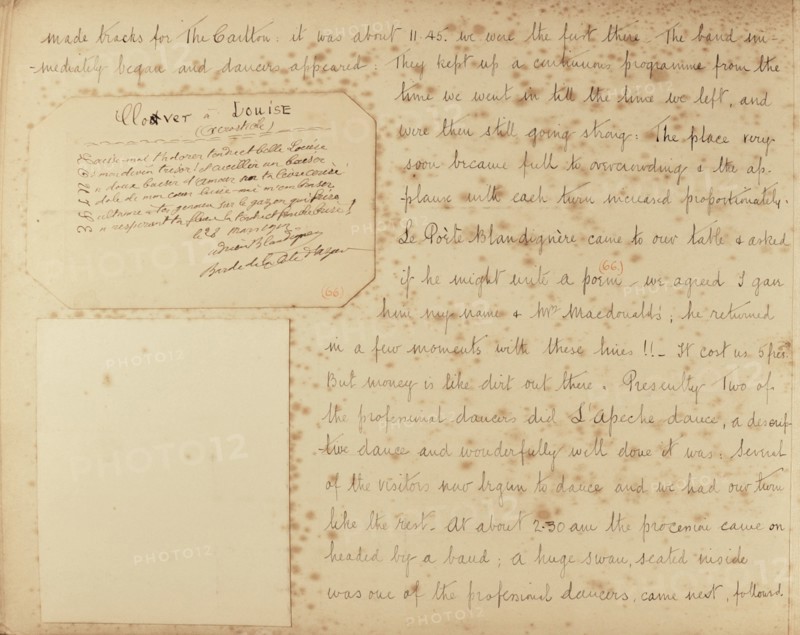 made tracks for The Carlton: it was about 11.45. we were the first there. The band im-
-mediately began and dancers appeared: They kept up a continuous programme from the
time we went in till the time we left, and
were then still going strong: The place very
soon became full to overcrowding & the ap-
plause with each turn increased proportionately.
Le Poète Blandignère came to our table & asked
(66.)
if he might write a poem - we agreed I gave
him my name & Mrs Macdonald's; he returned
in a few moments with these lines!!- It cost us 5 frcs.
But money is like dirt out there. Presently Two of
the professional dancers did L'Apache dance, a descrip-
-tive dance and wonderfully well done it was: Several
of the visitors now began to dance and we had our turn
like the rest. At about 2.30 am the procession came on
headed by a band; a huge swan, seated inside
was one of the professional dancers, came next, followed
à Louise
(Acrostiche)
et belle Louise
mon trésor! et cueillir un baiser
doux d'amour
de mon coeur
sur le gazon
Blandignère
Barde de la Côte d'Azur
(66)
PHOTO12